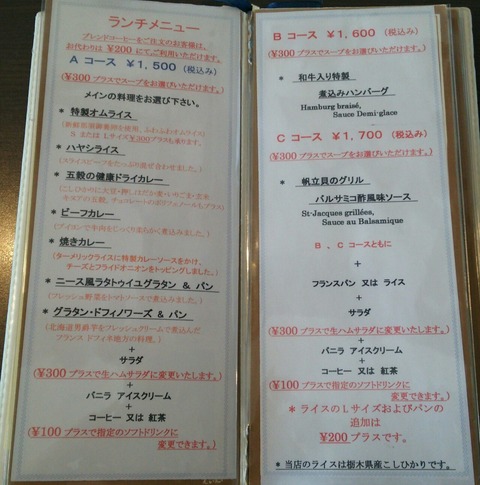 ランチメニュー
ブレンドコーヒーをご注文のお客様は、
お代わりは ¥200 にて、ご利用いただけます。
A コース ¥1,500 (税込み)
(¥300 プラスでスープをお選びいただけます。)
メインの料理をお選び下さい。
* 特製オムライス
S または Lサイズ¥300プラスも承ります。)
* ハヤシライス
(スライスビーフをたっぷり混ぜ合わせました。)
* 五穀の健康ドライカレー
* ビーフカレー
(ブイヨンで牛肉をじっくりまろやかく煮込みました。)
* 焼きカレー
(ターメリックライスに特製カレーソースをかけ、
チーズとフライドオニオンをトッピングしました。)
* ニース風ラタトゥイユグラタン & パン
(フレッシュ野菜をトマトソースで煮込みました。)
* グラタン・ドフィノワーズ & パン
(北海道男爵芋をフレッシュクリームで煮込んだ
フランス ドフィネ地方の料理。)
+
サラダ
(¥300 プラスで生ハムサラダに変更いたします。)
+
バニラ アイスクリーム
+
コーヒー 又は 紅茶
(¥100 プラスで指定のソフトドリンクに
変更できます。)
B コース ¥1,600 (税込み)
(¥300 プラスでスープをお選びいただけます。)
* 和牛入り特製
煮込みハンバーグ
Hamburg braisé,
Sauce Demi-glace
C コース ¥1,700 (税込み)
(¥300 プラスでスープをお選びいただけます。)
* 帆立貝のグリル
バルサミコ酢風味ソース
St-Jacques grillées,
Sauce au Balsamique
B 、C コースともに
+
フランスパン 又は ライス
+
サラダ
(¥300 プラスで生ハムサラダに変更いたします。)
+
バニラ アイスクリーム
+
コーヒー 又は 紅茶
(¥100 プラスで指定のソフトドリンクに
変更できます。)
* ライスのLサイズおよびパンの
追加は
¥200 プラスです。
* 当店のライスは栃木県産こしひかりです。